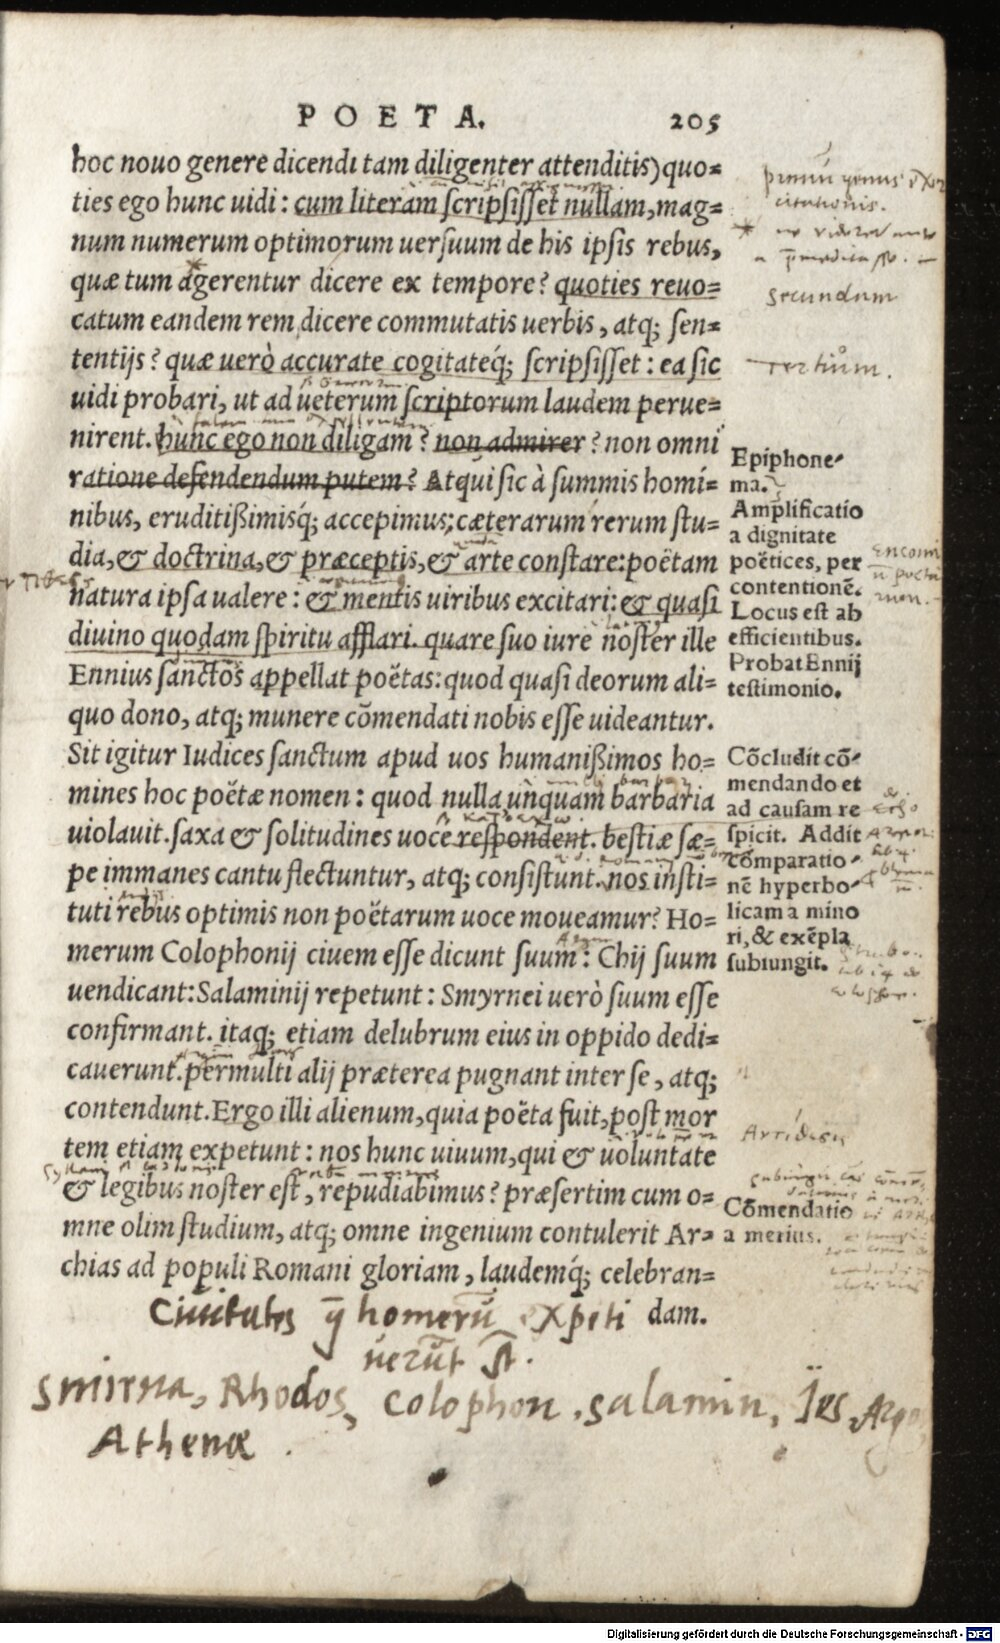 POETA. 205
hoc nouo genere dicendi tam diligenter attenditis) quo=
ties ego hunc uidi: cum literam scripsisset nullam, mag=
num numerum optimorum uersuum de his ipsis rebus,
quæ tum agerentur dicere ex tempore? quoties reuo=
catum eandem rem dicere commutatis uerbis, atq; sen=
tentijs? quæ uerò accurate cogitateq́; scripsisset: ea sic
uidi probari, ut ad ueterum scriptorum laudem perue=
nirent. hunc ego non diligam? non admirer? non omni
ratione defendendum putem? Atqui sic à summis homi=
nibus, eruditißimisq́; accepimus; cæterarum rerum stu=
dia, & doctrina, & præceptis, & arte constare: poëtam
natura ipsa ualere: & mentis uiribus excitari: & quasi
diuino quodam spiritu afflari. quare suo iure noster ille
Ennius sanctos appellat poëtas: quod quasi deorum ali=
quo dono, atq; munere cōmendati nobis esse uideantur.
Sit igitur Iudices sanctum apud uos humanißimos ho=
mines hoc poëtæ nomen: quod nulla unquam barbaria
uiolauit. saxa & solitudines uoce respondent. bestiæ sæ=
pe immanes cantu flectuntur, atq; consistunt. nos insti=
tuti rebus optimis non poëtarum uoce moueamur? Ho=
merum Colophonij ciuem esse dicunt suum: Chij suum
uendicant: Salaminij repetunt: Smyrnei uerò suum esse
confirmant. itaq; etiam delubrum eius in oppido dedi=
cauerunt. permulti alij præterea pugnant inter se, atq;
contendunt. Ergo illi alienum, quia poëta fuit, post mor
tem etiam expetunt: nos hunc uiuum, qui & uoluntate
& legibus noster est, repudiabimus? præsertim cum o=
mne olim studium, atq; omne ingenium contulerit Ar=
chias ad populi Romani gloriam, laudemq́; celebran=
dam.
secundum
tertium.
Epiphone=
ma.
Amplificatio
a dignitate
poëtices, per
contentionē.
Locus est ab
efficientibus.
Probat Ennij
testimonio.
Cōcludit cō=
mendando et
ad causam re
spicit. Addit
comparatio=
nē hyperbo=
licam a mino
ri, & exēpla
subiungit.
Cōmendatio
a meritis.
Ciuitates homerū expeti
uerūt
Smirna, Rhodos, Colophon, salamin, Ies, Argo
Athenæ
Digitalisierung gefördert durch die Deutsche Forschungsgemeinschaft - DFG